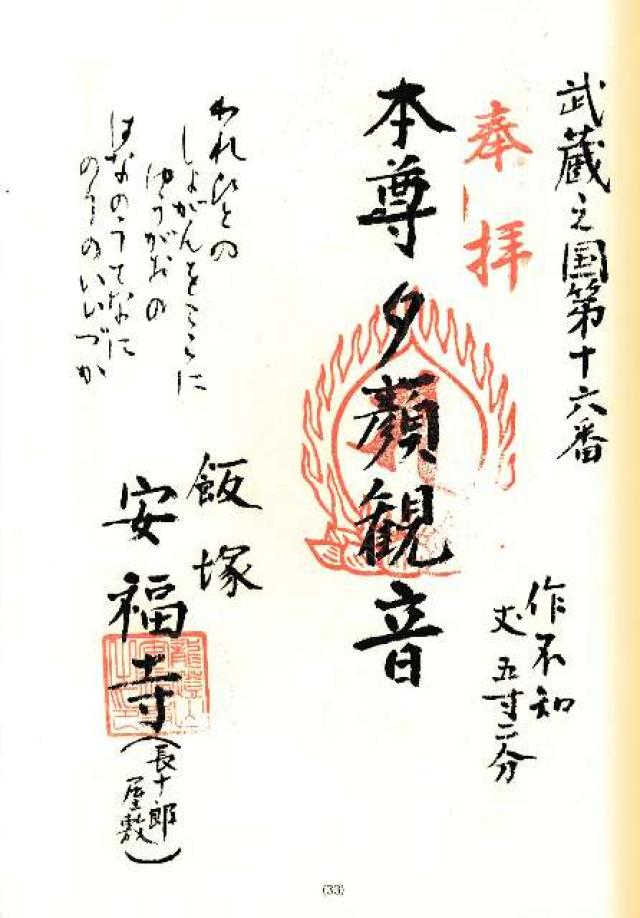 武蔵之国第十六番
作不知
丈 五寸二分
奉拝
本尊夕顔観音
われひとの
しよがんをここに
ゆうがおの
はなのうてなに
のりのいいづか
飯塚
安福寺
(長十郎
屋敷)
(33)